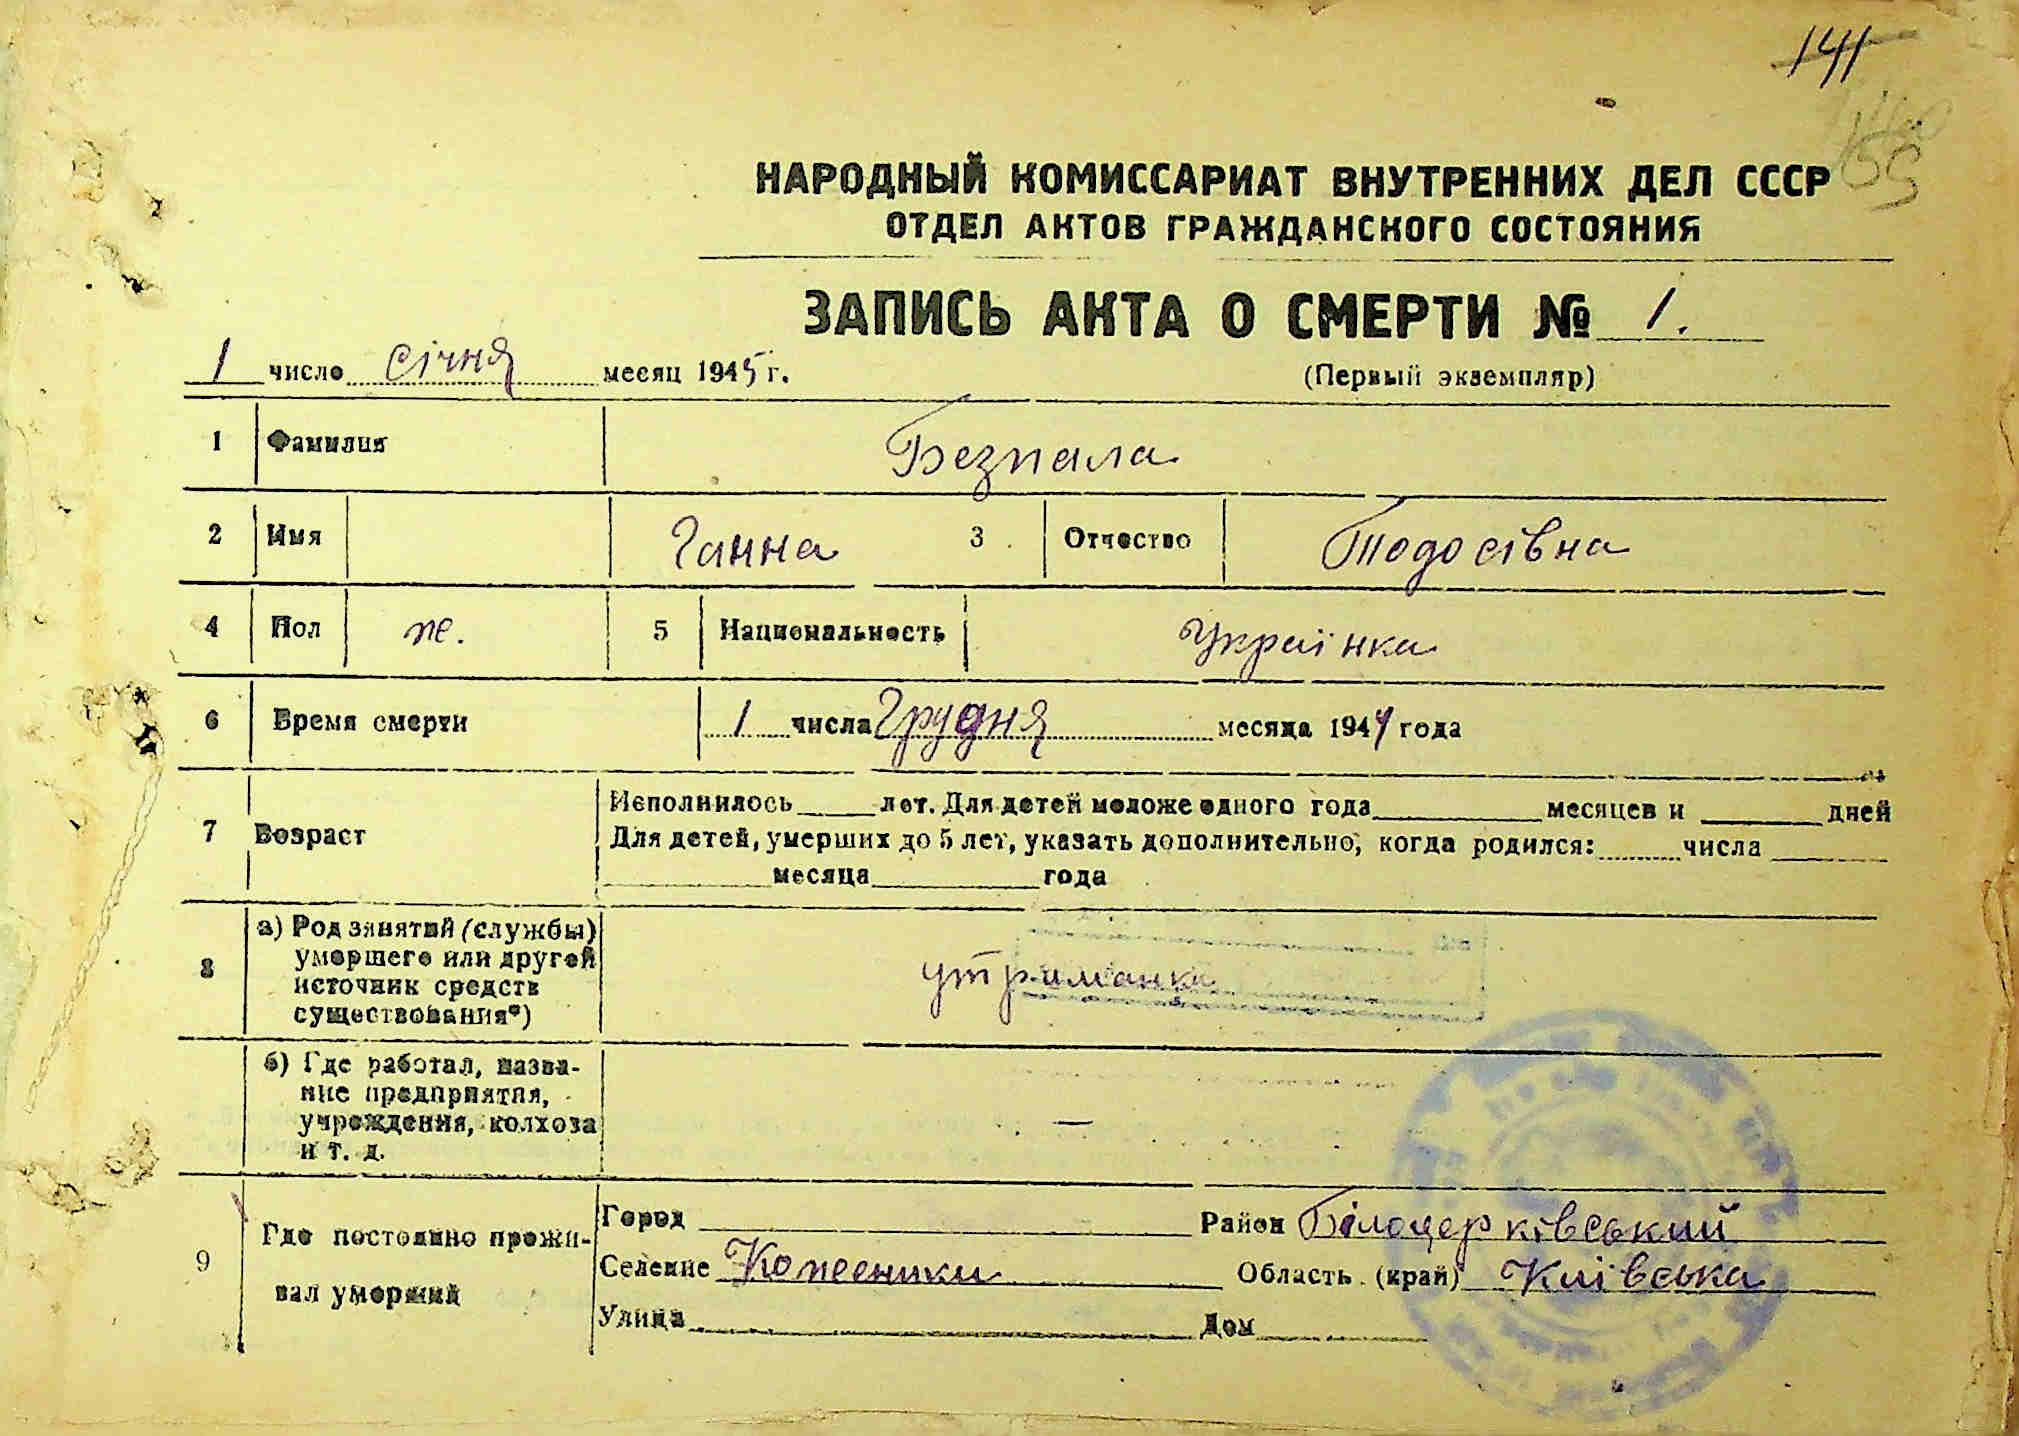 141
НАРОДНЫЙ КОМИССАРИАТ ВНУТРЕННИХ ДЕЛ СССР
ОТДЕЛ АКТОВ ГРАЖДАНСКОГО СОСТОЯНИЯ
ЗАПИСЬ АКТА О СМЕРТИ № 1.
1 число січня месяц 1945 г.
(Первый экземпляр)
1 Фамилия Безпала
2 Имя Ганна 3 Отчество Тодосівна
4 Пол ж. 5 Национальность Українка
6 Время смерти 1 числа Грудня месяца 1944 года
7 Возраст
Исполнилось лет. Для детей моложе одного года месяцев и дней
Для детей, умерших до 5 лет, указать дополнительно, когда родился: числа
месяца года
8 а) Род занятий (службы)
умершего или другой
источник средств
существования*)
утриманка
б) Где работал, назва-
ние предприятия,
учреждения, колхоза
и т. д.
—
9 Где постоянно прожи-
вал умерший
Город Район Білоцерківський
Селение Кожееники Область (край) Київська
Улица Дом